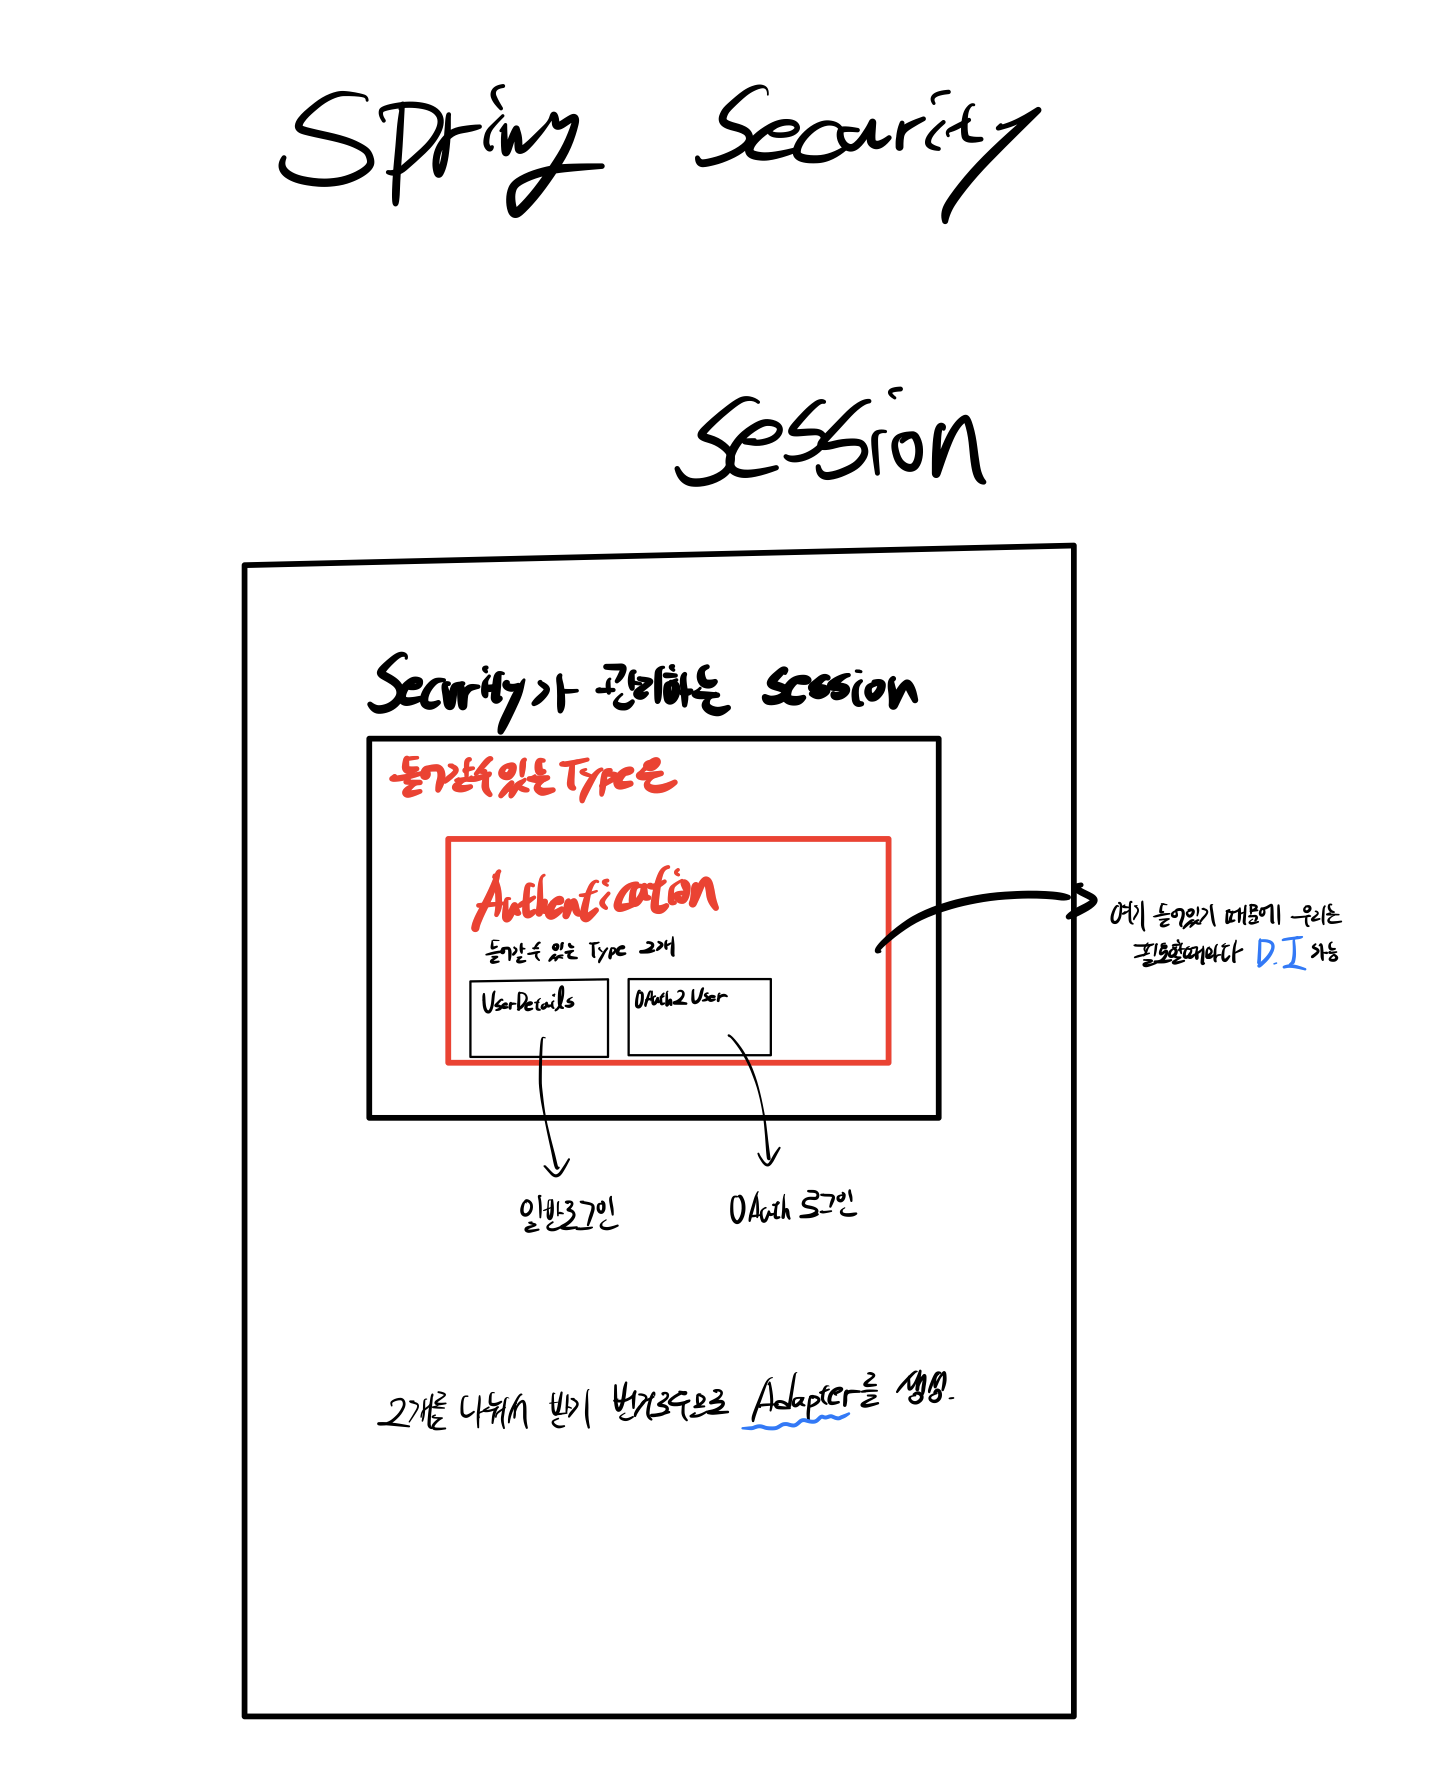 Spring Security
Session
Security가 관리하는 session
들어갈수있는 Type은
Authentication
들어갈수 있는 Type 2개
UserDetails
OAuth2 User
여기 들어있기 때문에 우리는
필요할때마다 D.I 가능
일반로그인
OAuth 로그인
2개를 나눠서 받기 번거로우므로 Adapter를 생성.